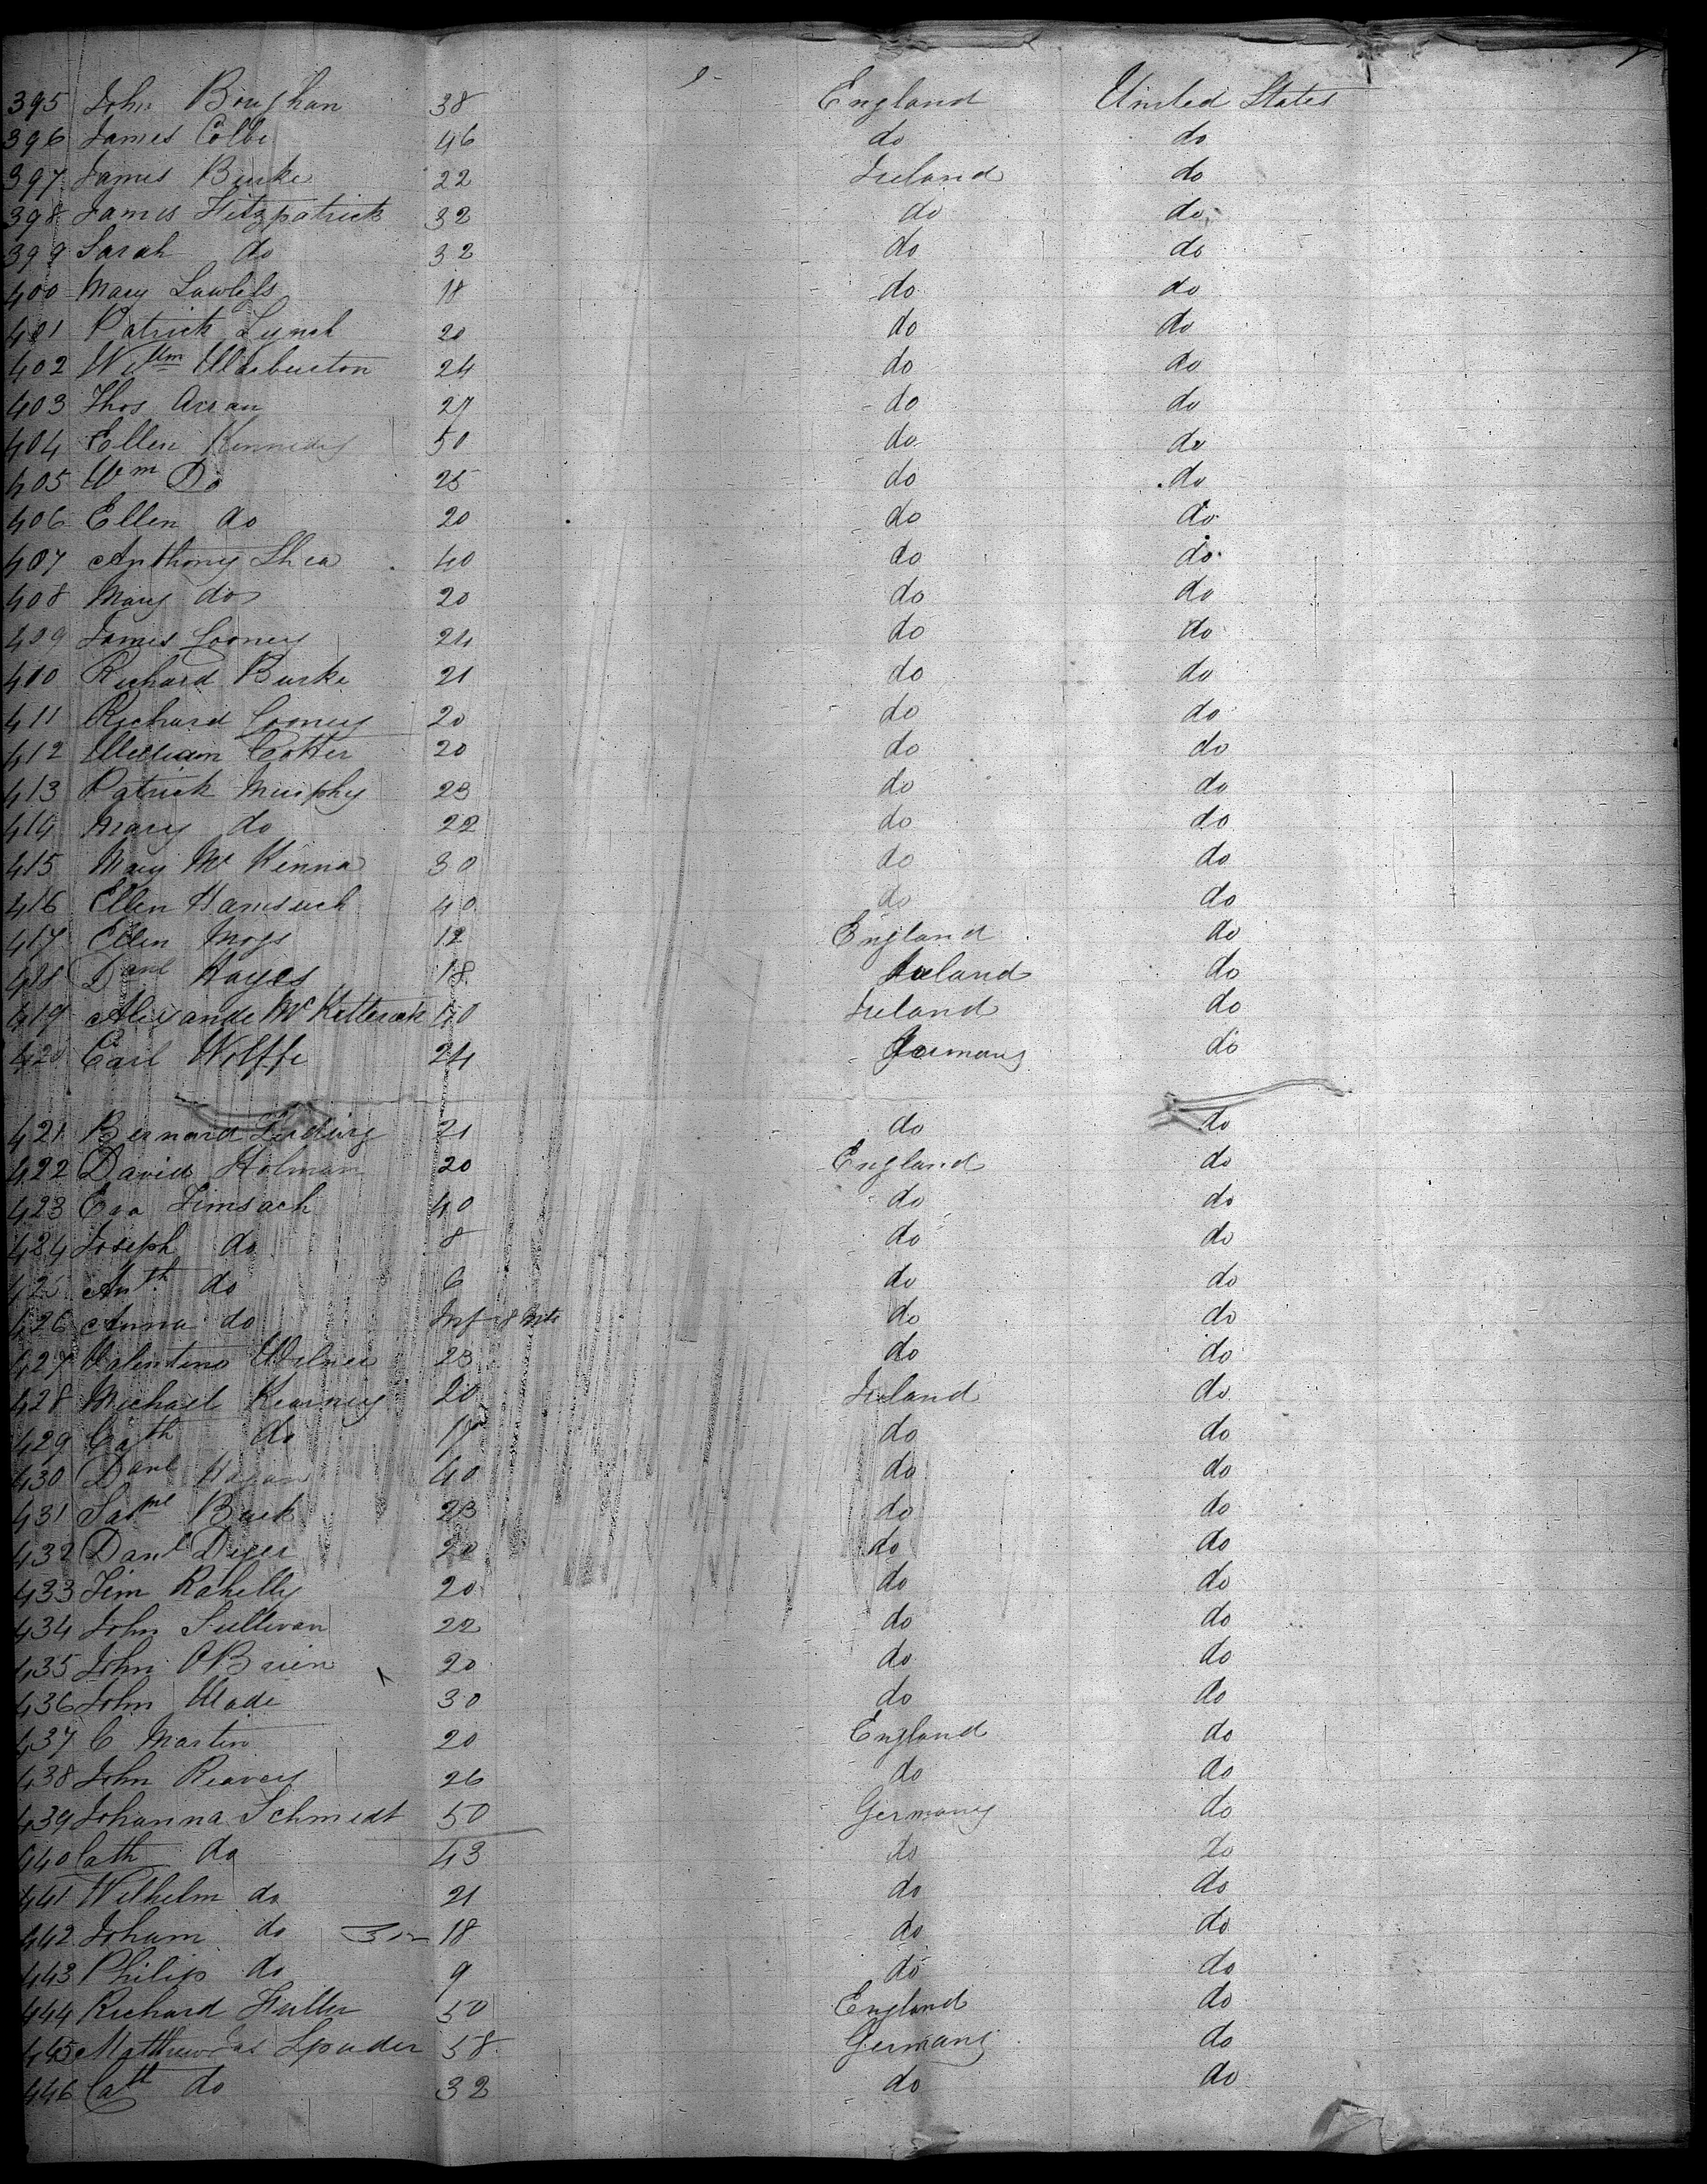 395 John Boughan 38 England United States
396 James Colbe 46 do do
397 James Burke 22 Ireland do
398 James Fitzpatrick 32 do do
399 Sarah do 32 do do
400 Mary Lawless 18 do do
401 Patrick Lynch 20 do do
402 Willm Warburton 24 do do
403 Thos Arran 27 do do
404 Ellen Kennedy 50 do do
405 Wm Do 25 do do
406 Ellen do 20 do do
407 Anthony Shea 40 do do
408 Mary do 20 do do
409 James Cooney 24 do do
410 Richard Burke 21 do do
411 Richard Cooney 20 do do
412 William Cotter 20 do do
413 Patrick Murphy 23 do do
414 Mary do 22 do do
415 Mary Mc Kenna 30 do do
416 Ellen 40 do do
417 Ellen Moss 12 England do
418 Danl Hayes 18 Ireland do
419 Alexande Mc Kitterick 40 Ireland do
420 Carl Wolffe 24 Germany do
421 Bernard 21 do do
422 David Holman 20 England do
423 Eva Timsach 40 do do
424 Joseph do 8 do do
425 Anth do 6 do do
426 Anna do Inf 8 Mts do do
427 Valentino 23 do do
428 Michael Kearney 20 Ireland do
429 Cath do 17 do do
430 Danl Hogan 40 do do
431 Buck 23 do do
432 Danl Dyer 20 do do
433 Tim Rahelly 20 do do
434 John Sullivan 22 do do
435 John OBrien 20 do do
436 John Wade 30 do do
437 C Martin 20 England do
438 John Reavey 26 do do
439 Johanna Schmidt 50 Germany do
440 Cath do 43 do do
441 Wilhelm do 21 do do
442 Joham do 18 do do
443 Philip do 9 do do
444 Richard Fuller 50 England do
445 Matthew Spuder 58 Germany do
446 Cath do 32 do do